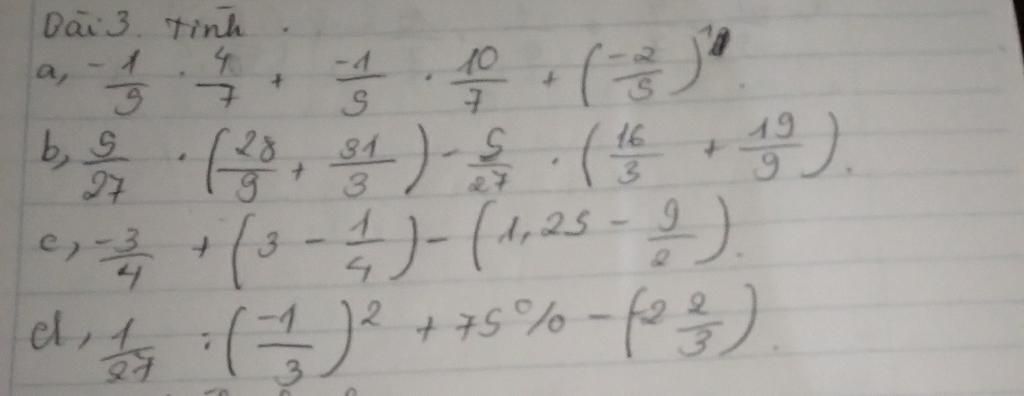 Bài 3. Tính.
a, -1/9 . 4/7 + -1/9 . 10/7 + (-2/5).
b, 5/27 . (28/9 + 31/3) - 5/27 . (16/3 + 19/9).
c, -3/4 + (3 - 1/4) - (1,25 - 9/2).
d, 1/27 : (-1/3)² + 75% - (2 2/3).